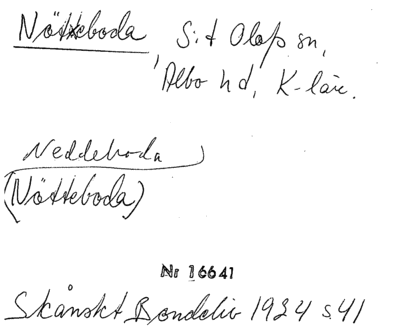 Nötteboda, S:t Olofs sn,
Albo hd, K-län.
Neddeboda
(Nötteboda)
Nr 16641
Skånskt Bondeliv 1924 s 41